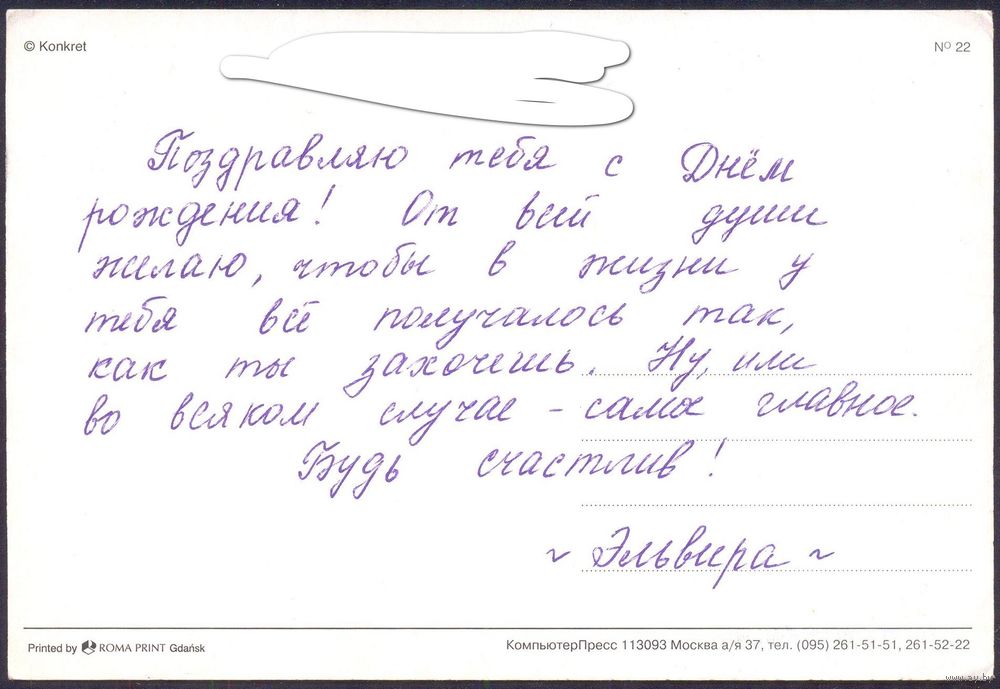 © Konkret
№ 22
Поздравляю тебя с Днём
рождения! От всей души
желаю, чтобы в жизни у
тебя всё получалось так,
как ты захочешь. Ну, или
во всяком случае - самое главное.
Будь счастлив!
~ Эльвира ~
Printed by ROMA PRINT Gdańsk
КомпьютерПресс 113093 Москва а/я 37, тел. (095) 261-51-51, 261-52-22
www.ay.by